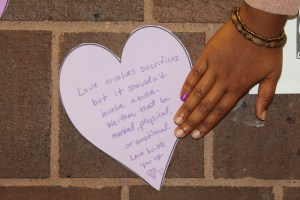 Love involves sacrifices
but it shouldn't
involve abuse.
Neither that be
mental, physical,
or emotional.
Love builds
you up